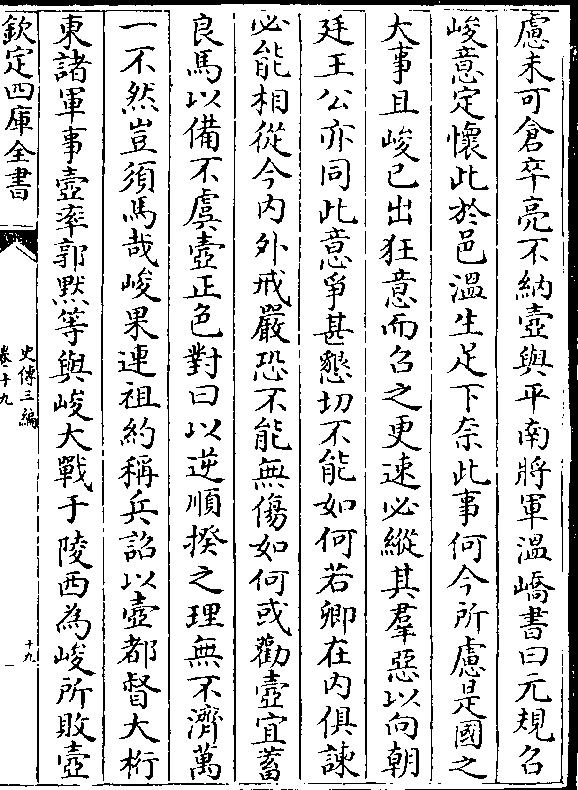 慮未可倉卒亮不納壼與平南將軍溫嶠書曰元規召
峻意定懷此於邑溫生足下奈此事何今所慮是國之
大事且峻已出狂意而召之更速必縱其羣惡以向朝
廷王公亦同此意爭甚懇切不能如何若卿在内俱諫
必能相從今内外戒嚴恐不能無傷如何或勸壼宜蓄
良馬以備不虞壼正色對曰以逆順揆之理無不濟萬
一不然豈須馬哉峻果連祖約稱兵詔以壼都督大桁
東諸軍事壼率郭默等與峻大戰于陵西為峻所敗壼
欽定四庫全書
史傳三編
卷十九
十九